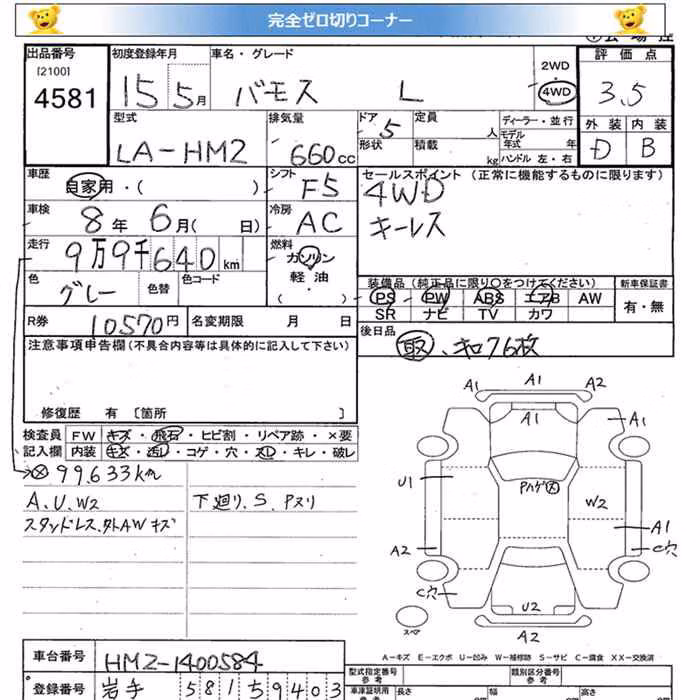 完全ゼロ切りコーナー
出品番号
[2100]
4581
初度登録年月
15 5月
車名・グレード
バモス L
2WD
4WD
評価点
3.5
外装 内装
D B
型式
LA-HM2
排気量
660cc
ドア
5
形状
定員
人
積載
kg
ディーラー・並行
モデル
年式 年
ハンドル 左・右
車歴
自家用・( )
シフト
F5
セールスポイント (正常に機能するものに限ります)
4WD
キーレス
車検
8年 6月( 日)
冷房
AC
走行
9万9千640km
燃料
ガソリン
軽油
・( )
色
グレー
色替
色コード
装備品 (純正品に限り○をつけてください)
PS PW ABS エアB AW
SR ナビ TV カワ
新車保証書
有・無
R券
10570円
名変期限 月 日
後日品
取、キロ76枚
注意事項申告欄(不具合内容等は具体的に記入して下さい)
修復歴 有 [箇所 ]
検査員
記入欄
FW キズ・飛石・ヒビ割・リペア跡・×要
内装 キズ・汚レ・コゲ・穴・スレ・キレ・破レ
99633km
A.U.W2
スタッドレス.外AWキズ
下廻り.S.Pヌリ
A1
A1
A2
A1
A1
U1
Pハゲ大
W2
A1
A2
C穴
C穴
U2
A2
スペア
A-キズ E-エクボ U-凹み W-補修跡 S-サビ C-腐食 XX-交換済
車台番号
HM2-1400584
登録番号
岩手 581 59403
型式指定番号
参考
類別区分番号
参考
車庫証明用
長さ
幅
高さ